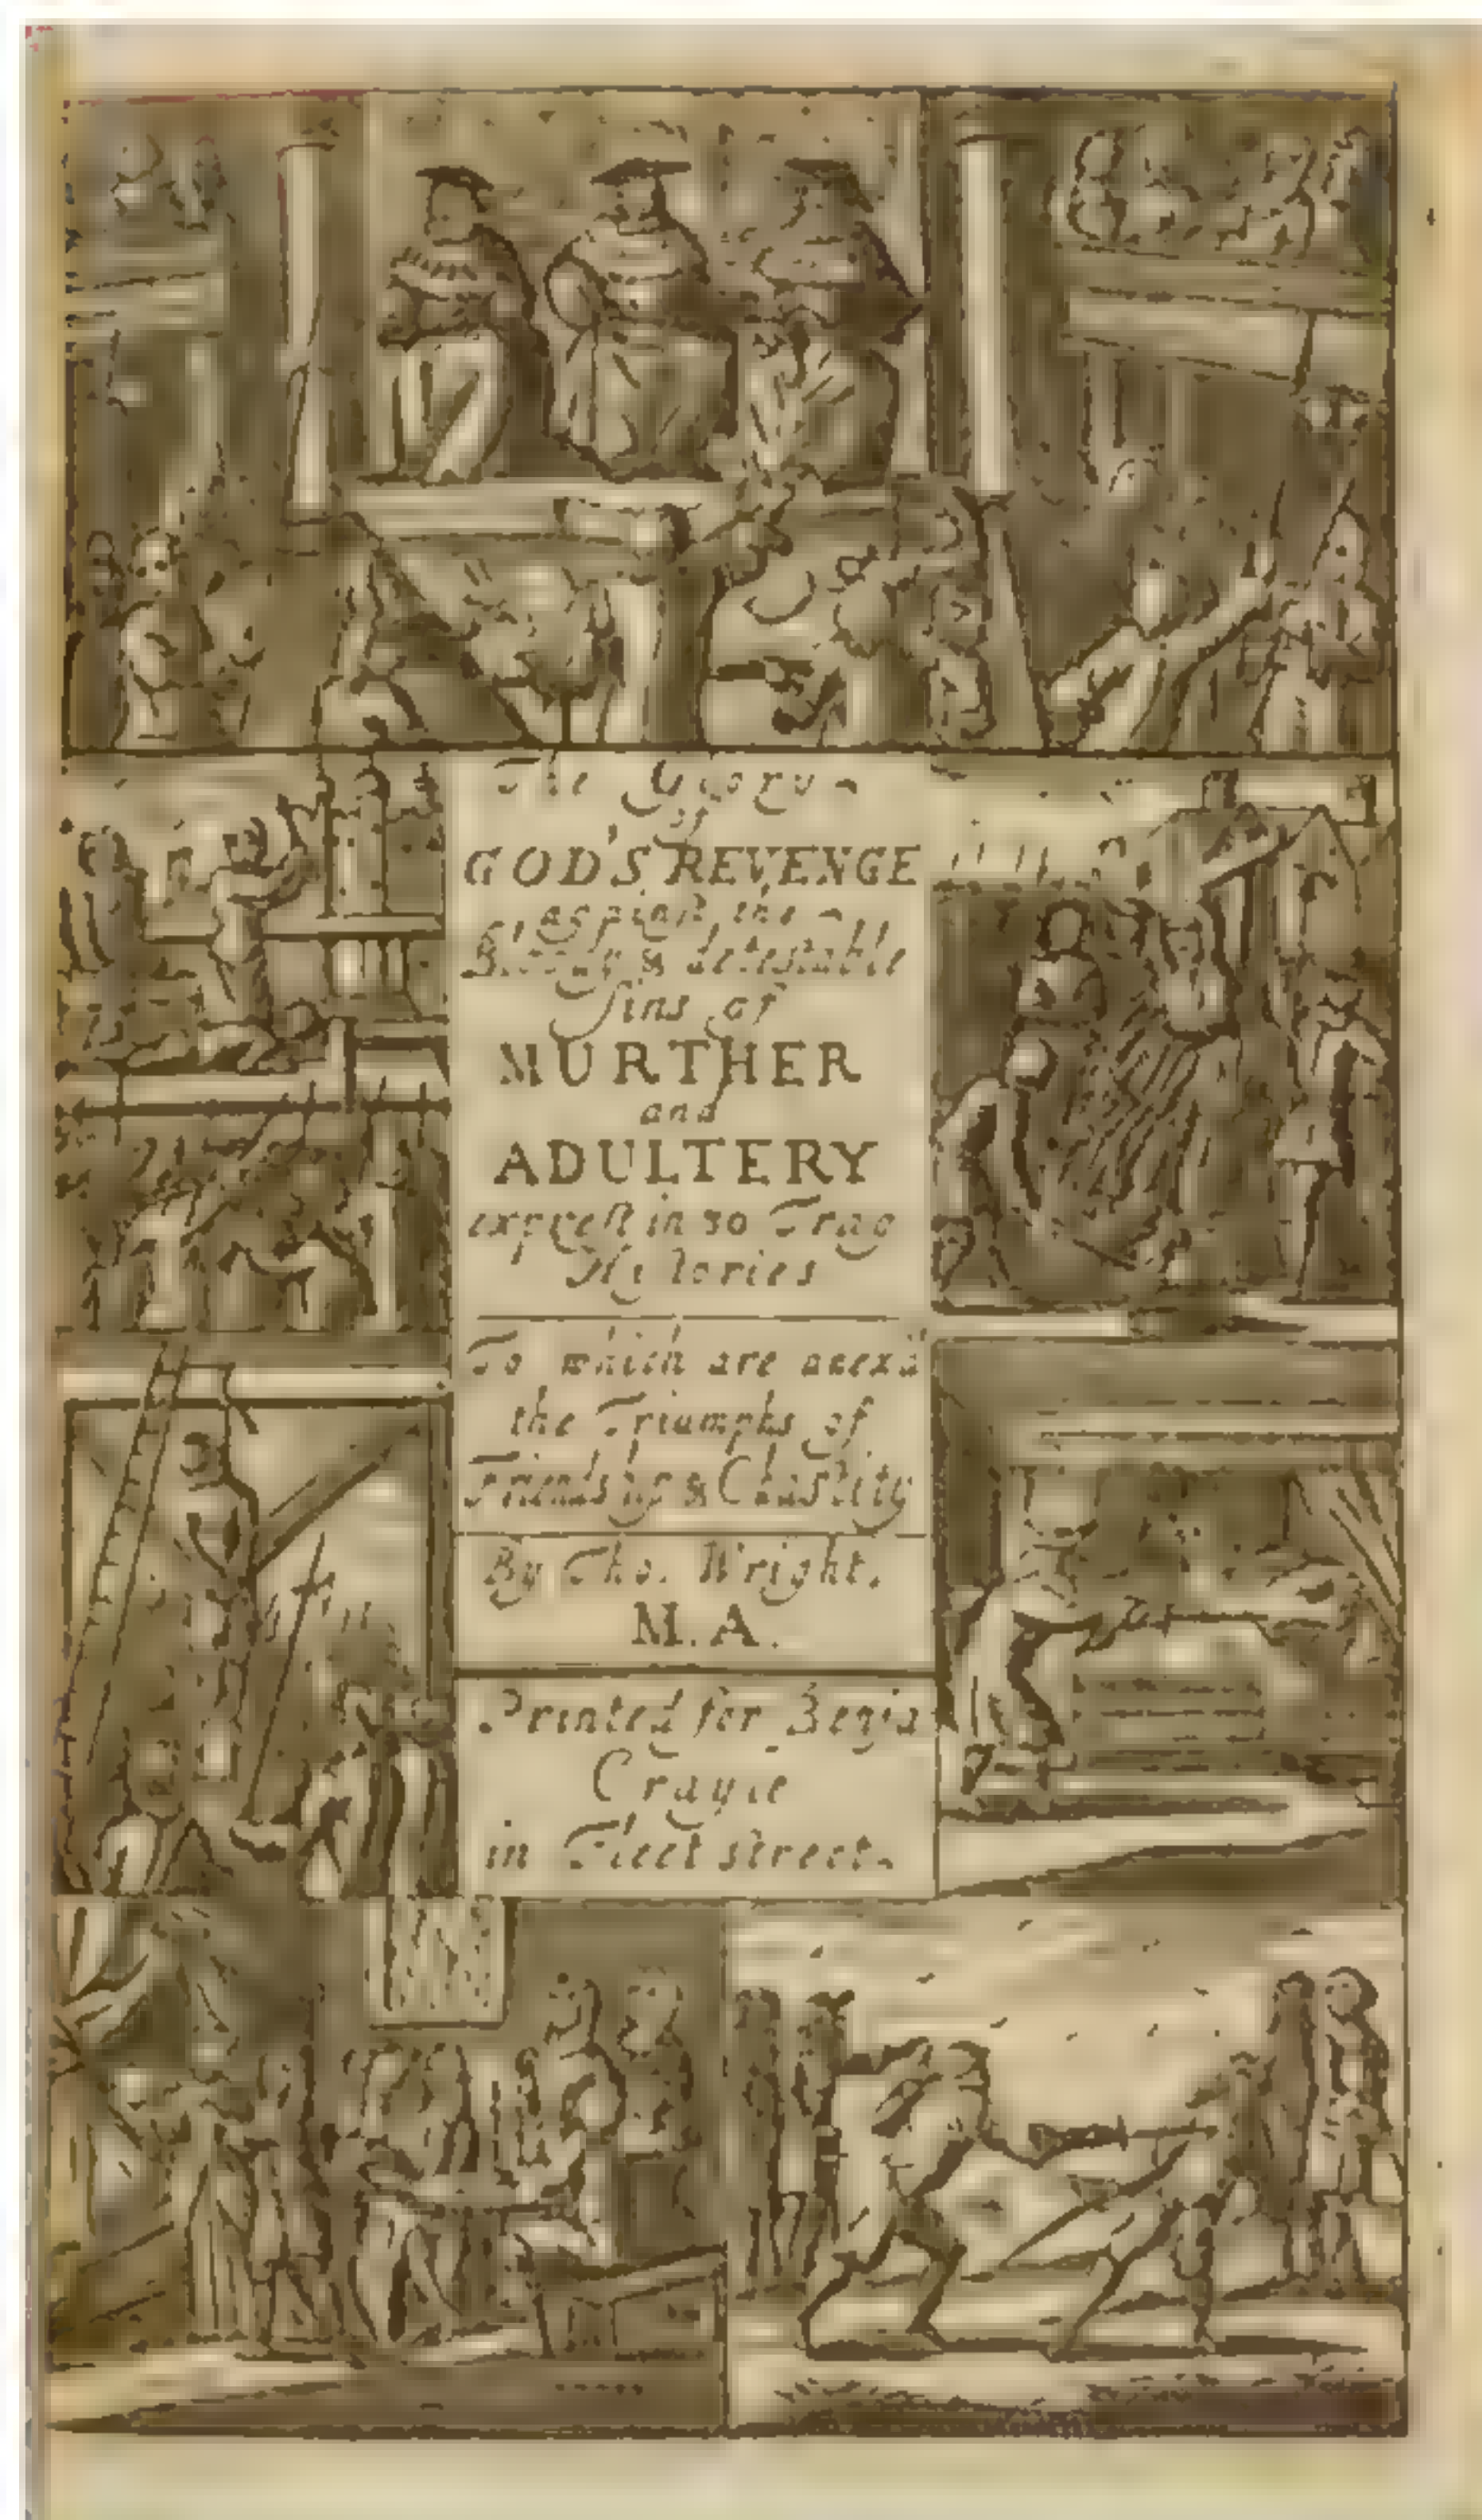 The Glory
of
GOD'S REVENGE
against the
Bloody & detestable
sins of
MURTHER
and
ADULTERY
exprest in 30 Trag
Histories
To which are anexd
the Triumphs of
Friendship & Chastity
By Tho. Wright.
M.A.
Printed for Benja
Crayle
in Fleet street.